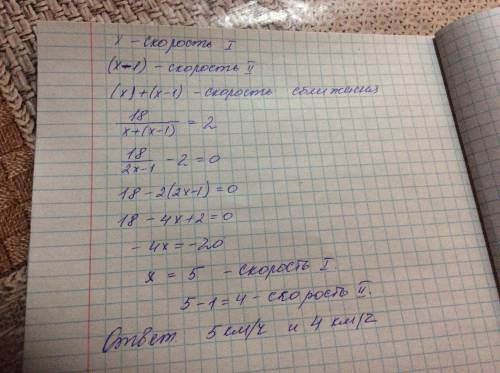 x - скорость I
(x-1) - скорость II
(x)+(x-1) - скорость сближения
18/(x+(x-1)) = 2
18/(2x-1) - 2 = 0
18 - 2(2x-1) = 0
18 - 4x + 2 = 0
- 4x = -20
x = 5 - скорость I.
5-1 = 4 - скорость II.
Ответ. 5 км/ч и 4 км/ч